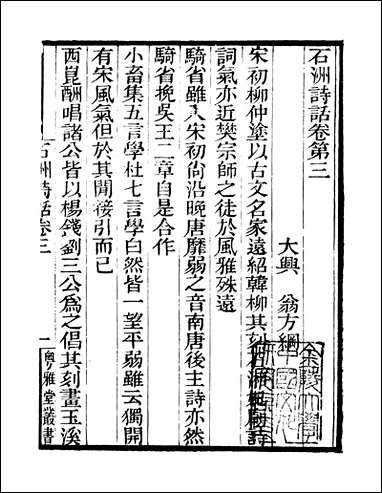 石洲詩話卷第三
大興 翁方綱
宋初柳仲塗以古文名家遠紹韓柳其刻石詩
詞氣亦近樊宗師之徒於風雅殊遠
騎省雖入宋初尙沿晚唐靡弱之音南唐後主詩亦然
騎省挽吳王二章自是合作
小畜集五言學杜七言學白然皆一望平弱雖云獨開
有宋風氣但於其間接引而已
西崑酬唱諸公皆以楊錢劉三公爲之倡其刻畫玉溪
石洲詩話卷三 一 粵雅堂叢書